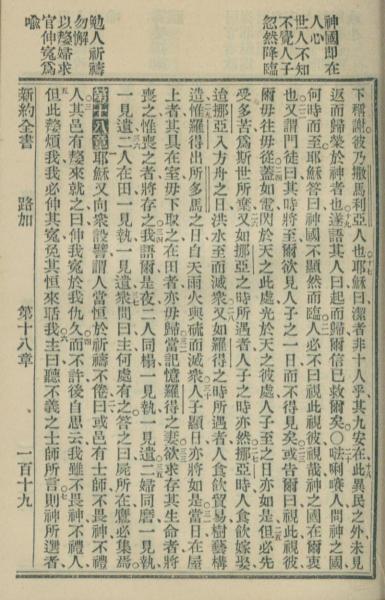 神國即在
人心
世人不知
不覺人子
忽然降臨
勉人祈禱
勿懈
以嫠婦求
官伸寃爲
喻
下稱謝彼乃撒馬利亞人也耶穌曰潔者非十人乎其九安在此異民之外未見
返而歸榮於神者也遂語其人曰起而歸爾信已救爾矣〇唎人問神之國
何時而至耶穌答曰神國不顯然而臨人必不曰視此視彼哉神之國在爾衷
也又謂門徒曰其時將至爾欲見人子之一日而不得見矣或告爾曰視此視彼
爾毋往毋從蓋如電閃於天之此處光於天之彼處人子至之日亦如是但必先
受多苦爲斯世所棄又如挪亞之時所遇者人子之時亦然挪亞時人食飲嫁娶
迨挪亞入方舟之日洪水至而滅衆又如羅得之時所遇者人食飲貿易樹藝構
造惟羅得出所多馬之日自天雨火與硫而滅衆人子顯日亦將如是當日在屋
上者其具在室毋下取之在田者亦毋歸當記憶羅得之妻欲求存其生命者將
喪之惟喪之者將存之我語爾是夜二人同榻一見執一見遺二婦同磨一見執
一見遺二人在田一見執一見遺衆問曰主何處有之答之曰屍所在鷹必集焉
第十八章耶穌又向衆設譬謂人當恒於祈禱不倦曰或邑有士師不畏神不禮
人其邑有嫠來就之曰伸我寃於我仇久而不許後自思云我雖不畏神不禮人
但此嫠煩我我必伸其寃免其恒來聒我主曰聽不義之士師所言則神所選者
新約全書 路加 第十八章 一百十九